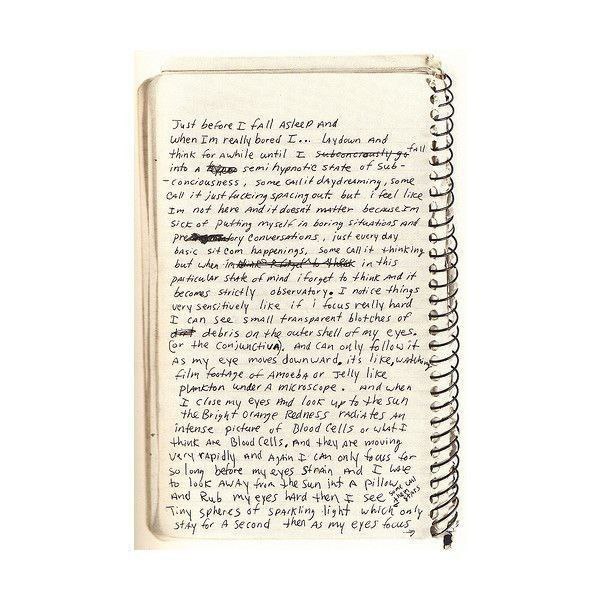 Just before I fall Asleep And
when Im really bored I... Laydown And
think for awhile until I subconciously go fall
into a semi hypnotic state of sub-
-conciousness, some call it daydreaming, some
call it just fucking spacing out but i feel like
Im not here And it doesnt matter because Im
sick of putting myself in boring situations and
conversations, just every day
basic sit com happenings, some call it thinking
but when in this
particular state of mind i forget to think And it
becomes strictly observatory. I notice things
very sensitively like if i focus really hard
I can see small transparent blotches of
dirt debris on the outer shell of my eyes.
(or the conjunctiva). And can only follow it
As my eye moves downward, it's like, watching
film footage of Amoeba or Jelly like
plankton under A microscope. And when
I close my eyes And look up to the sun
the Bright Orange Redness radiates An
intense picture of Blood Cells or what I
think are Blood Cells. And they are moving
very rapidly and Again I can only focus for
so long before my eyes strain And I have
to look AWAY from the sun int a pillow
And Rub my eyes hard then I see some call them stars
Tiny spheres of sparkling light which only
stay for A second then As my eyes focus